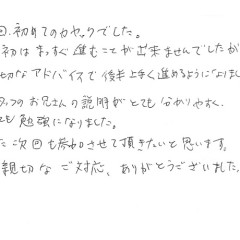 回、初めてのカヤックでした。
初はまっすぐ進むことが出来ませんでしたが
切なアドバイスで後半上手く進めるようになりまし
タッフのお兄さんの説明がとても分かりやすく、
ても勉強になりました。
た次回も参加させて頂きたいと思います。
親切なご対応、ありがとうございました。